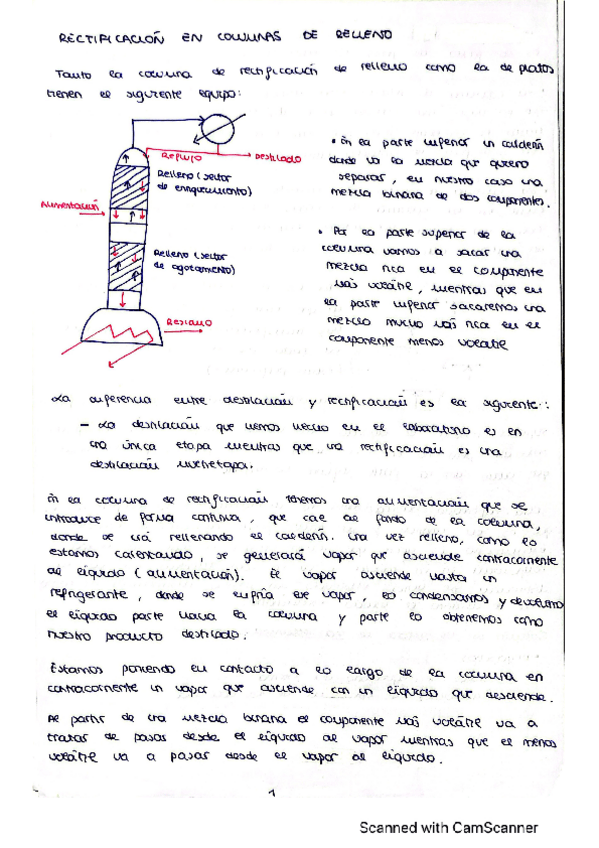 RECTIFICACIÓN EN COLUMNAS DE RELLENO
Tanto la columna de rectificación de relleno como la de platos
tienen el siguiente equipo:
REFLUJO
DESTILADO
Relleno (sector
de enriquecimiento)
Alimentación
Relleno (sector
de agotamiento)
RESIDUO
• En la parte inferior un calderín
donde va la mezcla que quiero
separar, en nuestro caso una
mezcla binaria de dos componentes.
• Por la parte superior de la
columna vamos a sacar una
mezcla rica en el componente
más volátil, mientras que en
la parte inferior sacaremos una
mezcla mucho más rica en el
componente menos volátil
La diferencia entre destilación y rectificación es la siguiente:
- La destilación que hemos hecho en el laboratorio es en
una única etapa mientras que una rectificación es una
destilación multietapa.
En la columna de rectificación tenemos una alimentación que se
introduce de forma continua, que cae al fondo de la columna,
donde se irá rellenando el calderín. Una vez relleno, como lo
estamos calentando, se generará vapor que asciende contracorriente
al líquido (alimentación). El vapor asciende hasta un
refrigerante, donde se enfría ese vapor, lo condensamos y devolvemos
el líquido parte hacia la columna y parte lo obtenemos como
nuestro producto destilado.
Estamos poniendo en contacto a lo largo de la columna en
contracorriente un vapor que asciende con un líquido que desciende.
Al partir de una mezcla binaria el componente más volátil va a
tratar de pasar desde el líquido al vapor mientras que el menos
volátil va a pasar desde el vapor al líquido.
1
Scanned with CamScanner